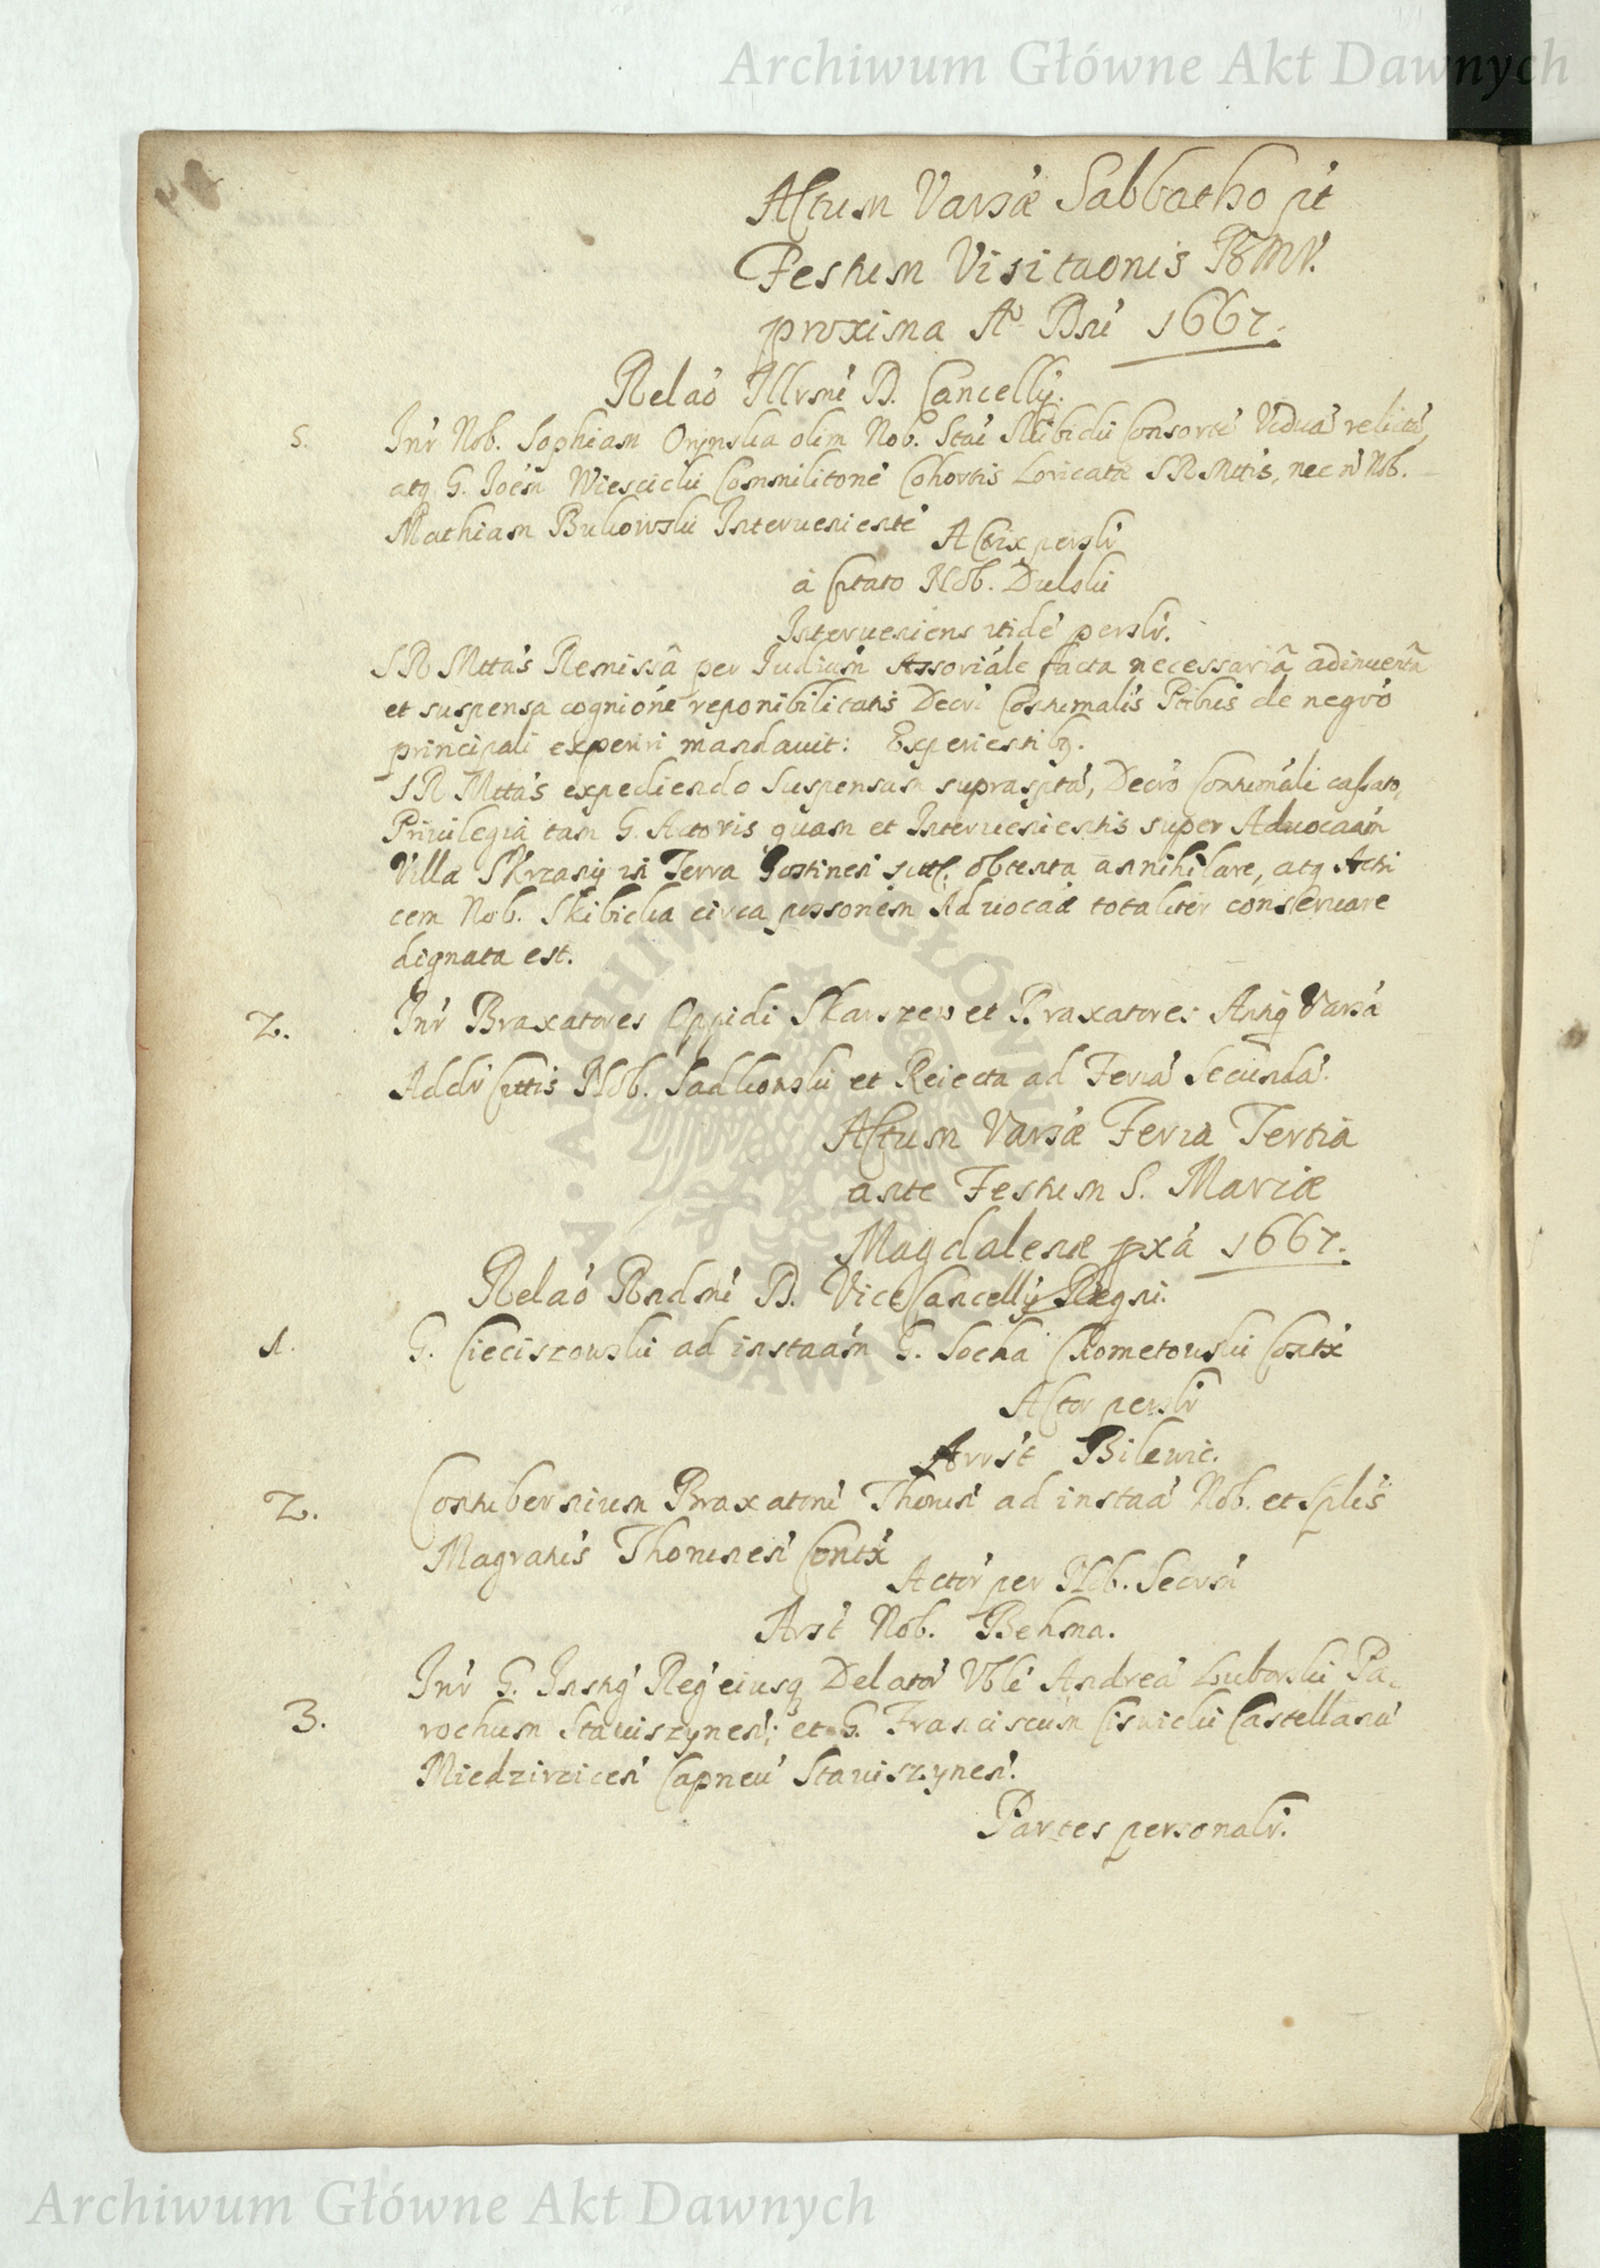 Archiwum Główne Akt Dawnych
Actum Varsæ Sabbatho pt
Festum Visitaonis BMV.
proxima Ao Dni 1667.
Relaó Illrsmi D. Cancellÿ.
5. Inr Nob. Sophiam olim Nob. Stai Skibicki Consorté Viduá relictá,
atq G. Joém Wiescicki Commilitoné Cohortis Loricatæ SRMttis, nec n Nob.
Mathiam Bukowski Intervenienté
Actrix persír
á Citato Nob. Dulski
Interveniens itidé persír.
SRMttas Remissâ per Iudium Assoriále facta necessariâ adinventâ
et suspensa cognióne reponibilitatis Decri Contumalis Ptibus de negró
principali experiri mandavit: Experientibq.
SRMttas expediendo Suspensam suprasptá, Decró Contumáli cassato,
Privilegia tam G. Actoris quam et Intervenientis super Advocaám
Villæ Skrzany in Terra Gostinen obtenta annihilare, atq Actri
cem Nob. Skibicka circa possoném Advocaæ totaliter conservare
dignata est.
2. Inr Braxatores Oppidi Skarszew et Braxatores Antiq Varsá
Addír Cittis Nob. Sadkowski et Reiecta ad Feriá Secundá.
Actum Varsæ Feria Tertia
ante Festum S. Mariæ
Magdalenæ pxá 1667.
Relaó Rndmi D. ViceCancellÿ Regni.
1. G. Cieciszowski ad instaám G. Socha Chometowski Contx
Actor persír
Arrst Bilewic.
2. Contubernium Braxatorú Thorun ad instaá Nob. et Splis
Magratus Thorunen Contx
Actor per Nob.
Arst Nob. Behma.
3. Inr G. Instig Reg eiusq Delatoré Vble Andreá Luborski Pa-
rochum Stauiszynen; et G. Franciscum Cisuicki Castellanú
Miedzirzicen Capneú Stauiszynen.
Partes personalr.
Archiwum Główne Akt Dawnych